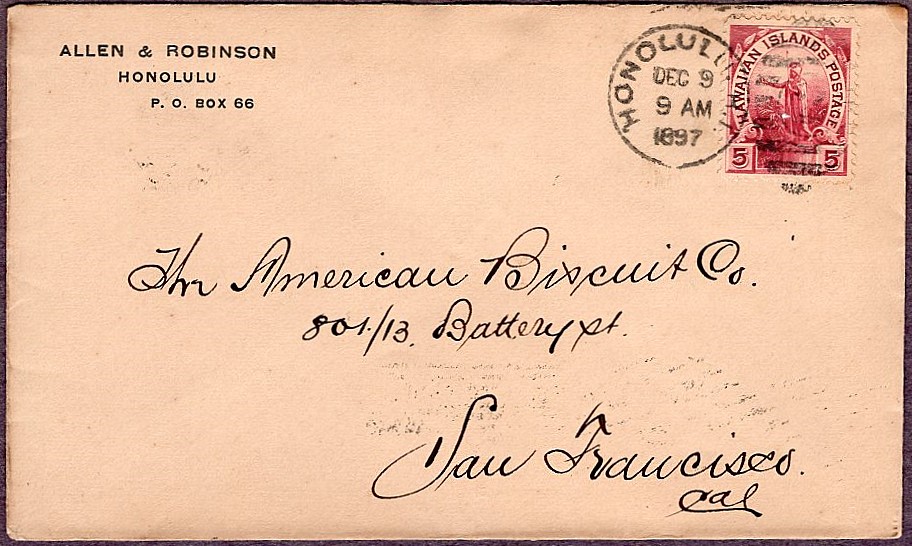 ALLEN & ROBINSON
HONOLULU
P. O. BOX 66
HONOLULU H.I.
DEC 9
9 AM
1897
HAWAIIAN ISLANDS POSTAGE
5 5
The American Biscuit Co.
801/13, Battery st.
San Francisco.
Cal